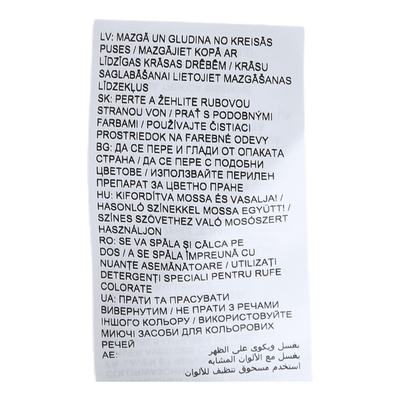 LV: MAZGĀ UN GLUDINA NO KREISĀS
PUSES / MAZGĀJIET KOPĀ AR
LĪDZĪGAS KRĀSAS DRĒBĒM / KRĀSU
SAGLABĀŠANAI LIETOJIET MAZGĀŠANAS
LĪDZEKĻUS
SK: PERTE A ŽEHLITE RUBOVOU
STRANOU VON / PRAŤ S PODOBNÝMI
FARBAMI / POUŽÍVAJTE ČISTIACI
PROSTRIEDOK NA FAREBNÉ ODEVY
BG: ДА СЕ ПЕРЕ И ГЛАДИ ОТ ОПАКАТА
СТРАНА / ДА СЕ ПЕРЕ С ПОДОБНИ
ЦВЕТОВЕ / ИЗПОЛЗВАЙТЕ ПЕРИЛЕН
ПРЕПАРАТ ЗА ЦВЕТНО ПРАНЕ
HU: KIFORDÍTVA MOSSA ÉS VASALJA! /
HASONLÓ SZÍNEKKEL MOSSA EGYÜTT! /
SZÍNES SZÖVETHEZ VALÓ MOSÓSZERT
HASZNÁLJON
RO: SE VA SPĂLA ȘI CĂLCA PE
DOS / A SE SPĂLA ÎMPREUNĂ CU
NUANȚE ASEMĂNĂTOARE / UTILIZAȚI
DETERGENȚI SPECIALI PENTRU RUFE
COLORATE
UA: ПРАТИ ТА ПРАСУВАТИ
ВИВЕРНУТИМ / НЕ ПРАТИ З РЕЧАМИ
ІНШОГО КОЛЬОРУ / ВИКОРИСТОВУЙТЕ
МИЮЧІ ЗАСОБИ ДЛЯ КОЛЬОРОВИХ
РЕЧЕЙ
AE: يغسل ويكوى على الظهر
يغسل مع الألوان المشابه
استخدم مسحوق تنظيف للألوان